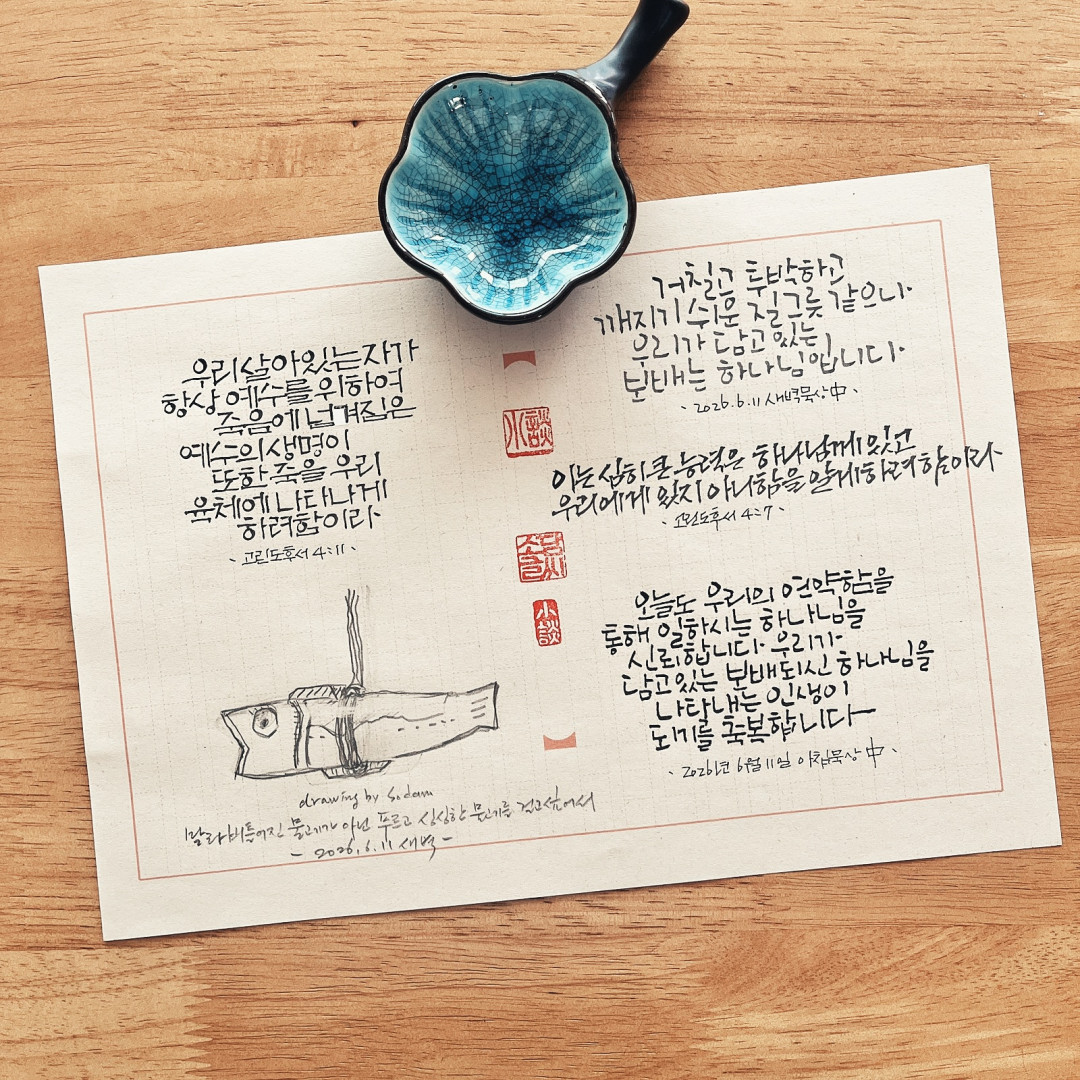 우리 살아 있는 자가
항상 예수를 위하여
죽음에 넘겨짐은
예수의 생명이
또한 죽을 우리
육체에 나타나게
하려 함이라
- 고린도후서 4:11 -
drawing by Sodam
말라 비틀어진 물고기가 아닌 푸르고 싱싱한 물고기를 걸고 싶어서
- 2026. 6. 11 새벽 -
小談
小談
거칠고 투박하고
깨지기 쉬운 질그릇 같으나
우리가 담고 있는
보배는 하나님입니다.
- 2026. 6. 11 새벽묵상 中 -
이는 심히 큰 능력은 하나님께 있고
우리에게 있지 아니함을 알게 하려 함이라
- 고린도후서 4:7 -
오늘도 우리의 연약함을
통해 일하시는 하나님을
신뢰합니다. 우리가
담고 있는 보배되신 하나님을
나타내는 인생이
되기를 축복합니다
- 2026년 6월 11일 아침묵상 中 -